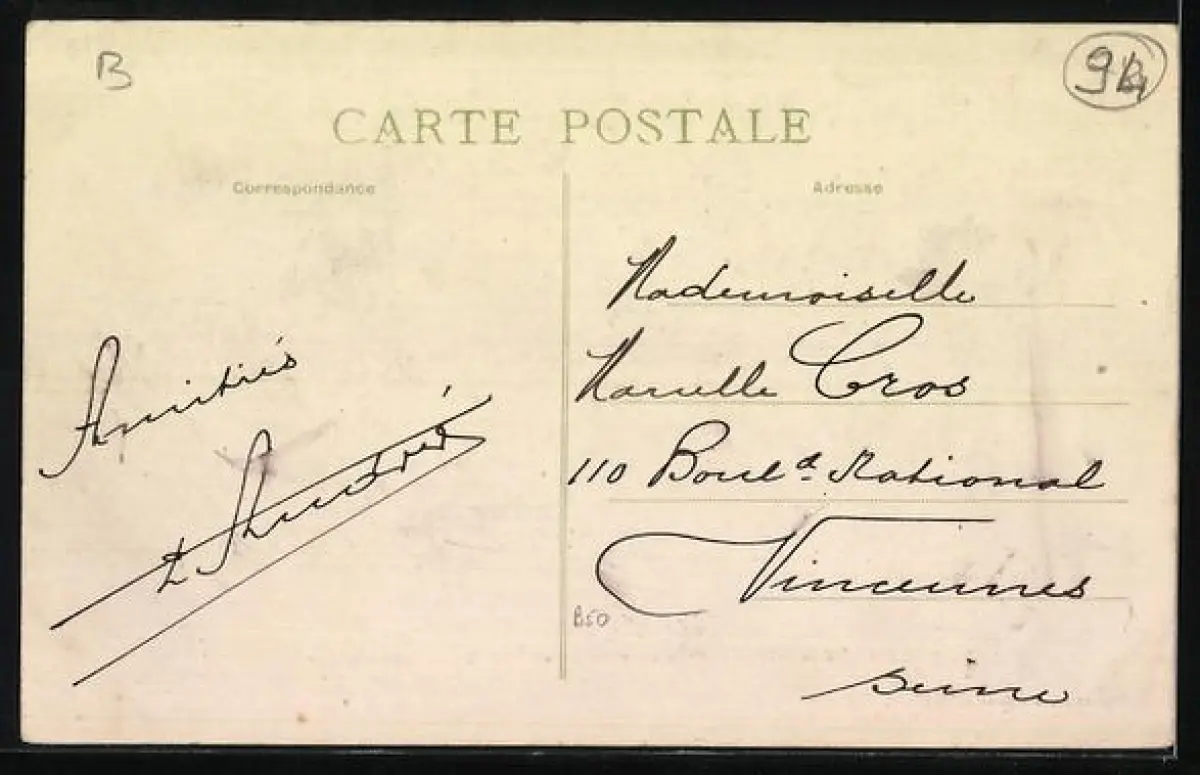 B
94
CARTE POSTALE
Correspondance
Adresse
Amitiés
Mademoiselle
Marcelle Cros
110 Boul.d National
Vincennes
Seine
B50